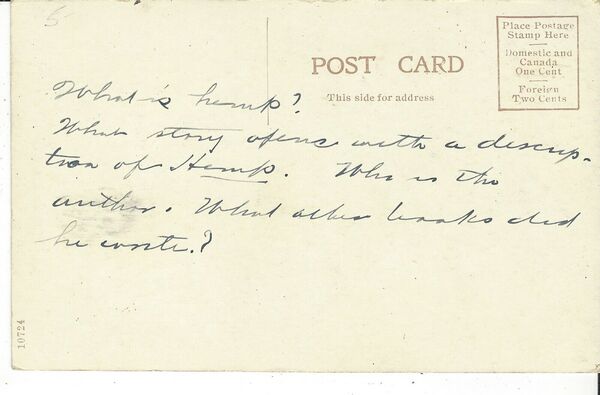 5
Place Postage
Stamp Here
Domestic and
Canada
One Cent
Foreign
Two Cents
POST CARD
This side for address
What is hemp?
What story opens with a descrip-
tion of Hemp. Who is the
author. What other books did
he write.?
10724